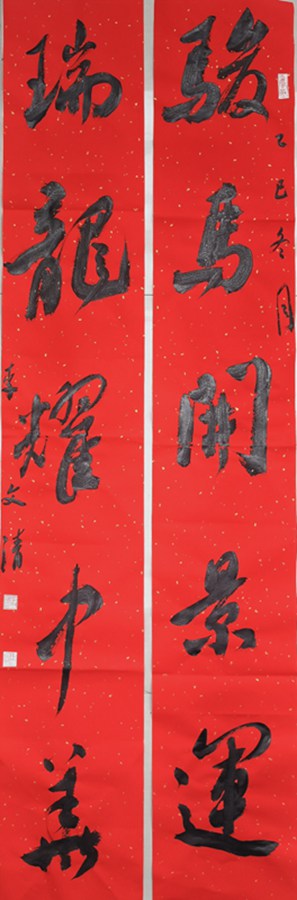 駿馬開景運
乙巳冬月
瑞龍耀中華
李文清